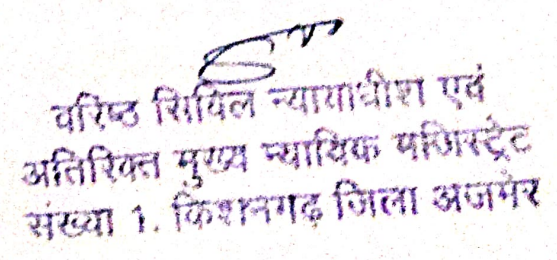 वरिष्ठ सिविल न्यायाधीश एवं
अतिरिक्त मुख्य न्यायिक मजिस्ट्रेट
संख्या 1. किशनगढ़ जिला अजमेर